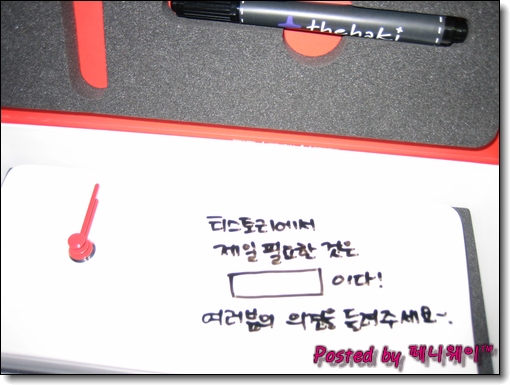 thehaki
티스토리에서
제일 필요한 것은
이다!
여러분의 의견을 들려주세요~.
Posted by 페니웨이™